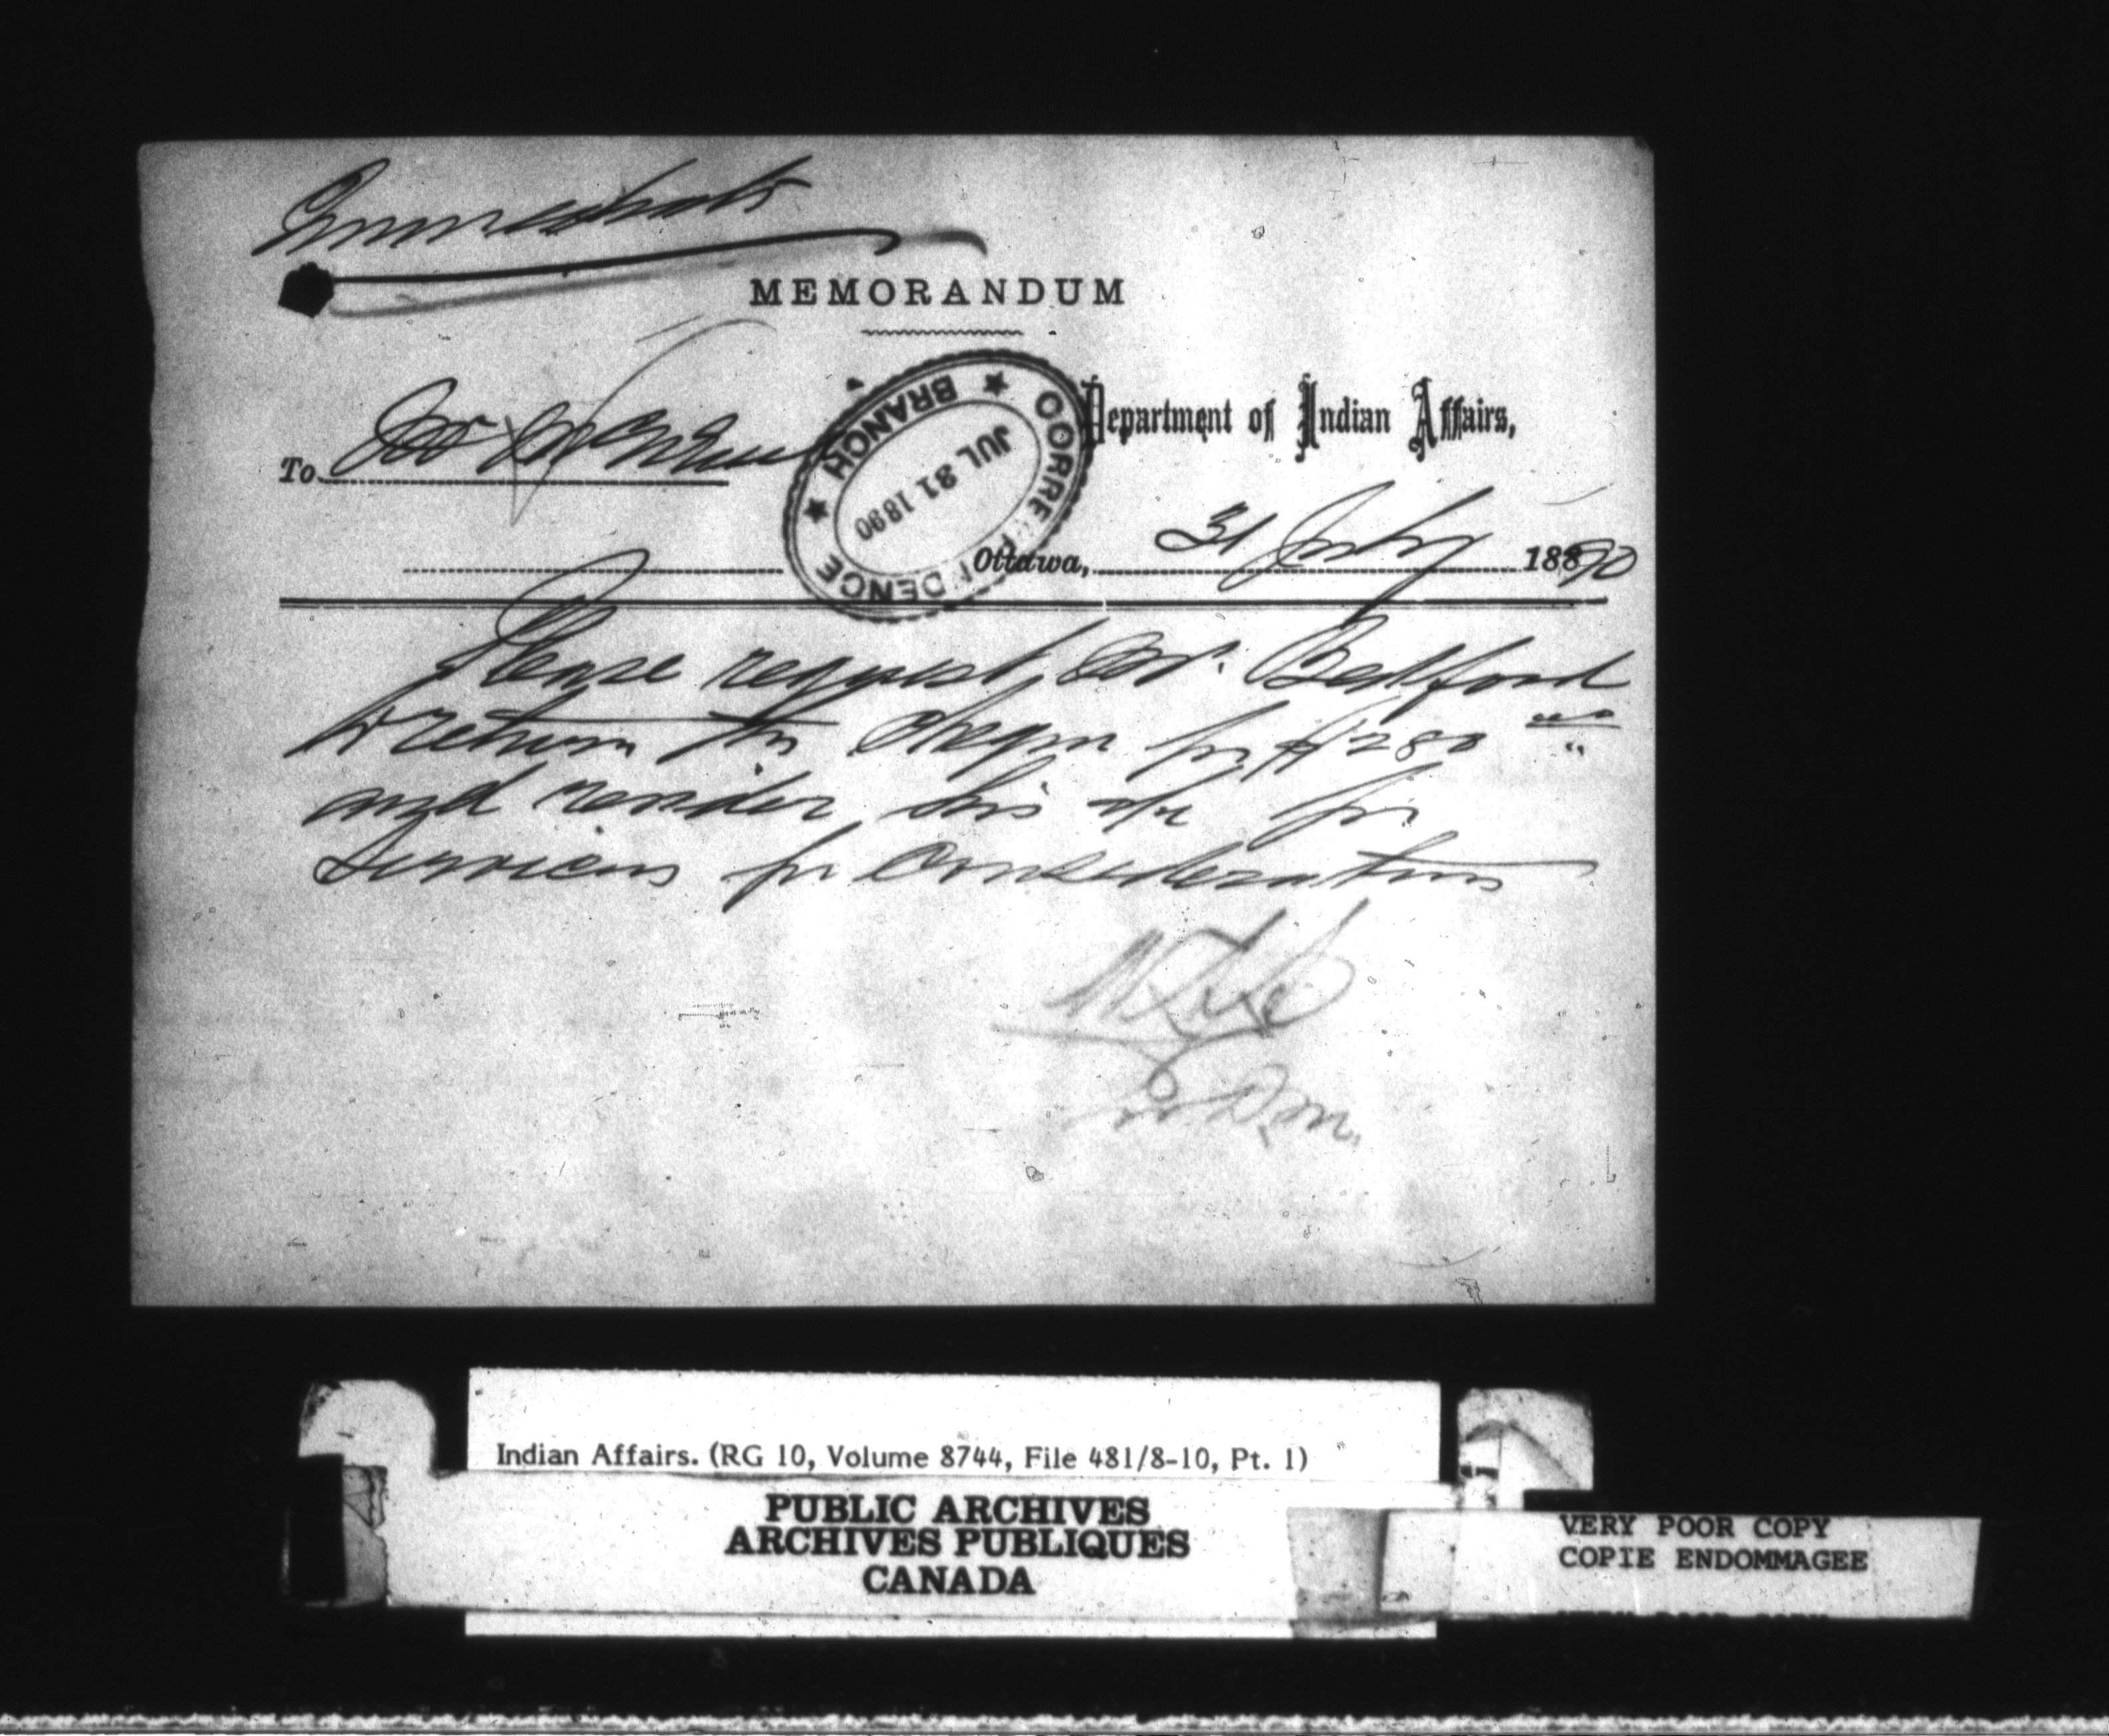 Immediate
MEMORANDUM
Department of Indian Affairs,
To Mr
CORRESPONDENCE BRANCH
JUL 31 1890
Ottawa, 31 July 1890
Please request Mr. Bedford
to return the cheque for $280 00
and render his a/c for
services for consideration
D.M.
Indian Affairs. (RG 10, Volume 8744, File 481/8-10, Pt. 1)
PUBLIC ARCHIVES
ARCHIVES PUBLIQUES
CANADA
VERY POOR COPY
COPIE ENDOMMAGEE